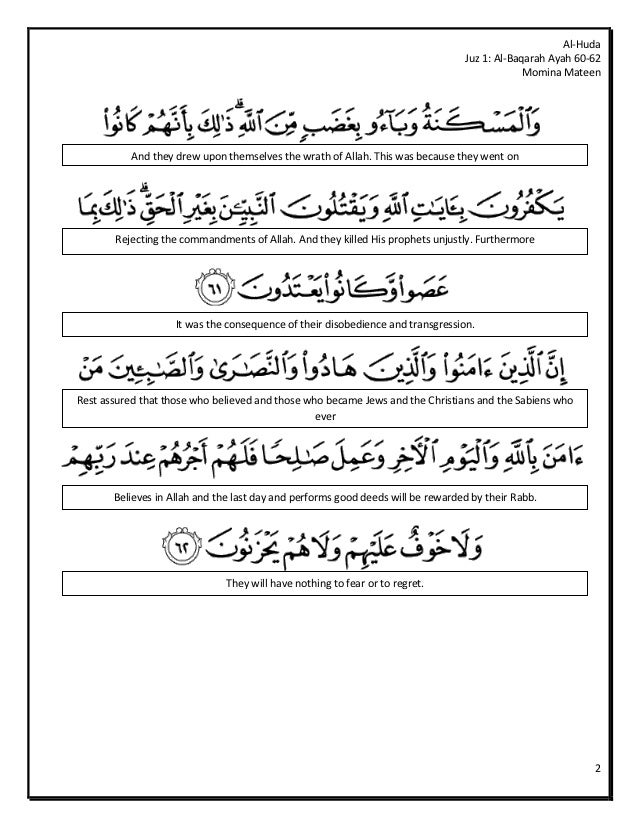 Al-Huda
Juz 1: Al-Baqarah Ayah 60-62
Momina Mateen
وَٱلْمَسْكَنَةُ وَبَآءُو بِغَضَبٍ مِّنَ ٱللَّهِ ۗ ذَٰلِكَ بِأَنَّهُمْ كَانُوا۟
And they drew upon themselves the wrath of Allah. This was because they went on
يَكْفُرُونَ بِـَٔايَـٰتِ ٱللَّهِ وَيَقْتُلُونَ ٱلنَّبِيِّـۧنَ بِغَيْرِ ٱلْحَقِّ ۗ ذَٰلِكَ بِمَا
Rejecting the commandments of Allah. And they killed His prophets unjustly. Furthermore
عَصَوا۟ وَّكَانُوا۟ يَعْتَدُونَ ٦١
It was the consequence of their disobedience and transgression.
إِنَّ ٱلَّذِينَ ءَامَنُوا۟ وَٱلَّذِينَ هَادُوا۟ وَٱلنَّصَـٰرَىٰ وَٱلصَّـٰبِـِٔينَ مَنْ
Rest assured that those who believed and those who became Jews and the Christians and the Sabiens who
ever
ءَامَنَ بِٱللَّهِ وَٱلْيَوْمِ ٱلْـَٔاخِرِ وَعَمِلَ صَـٰلِحًا فَلَهُمْ أَجْرُهُمْ عِندَ رَبِّهِمْ
Believes in Allah and the last day and performs good deeds will be rewarded by their Rabb.
وَلَا خَوْفٌ عَلَيْهِمْ وَلَا هُمْ يَحْزَنُونَ ٦٢
They will have nothing to fear or to regret.
2